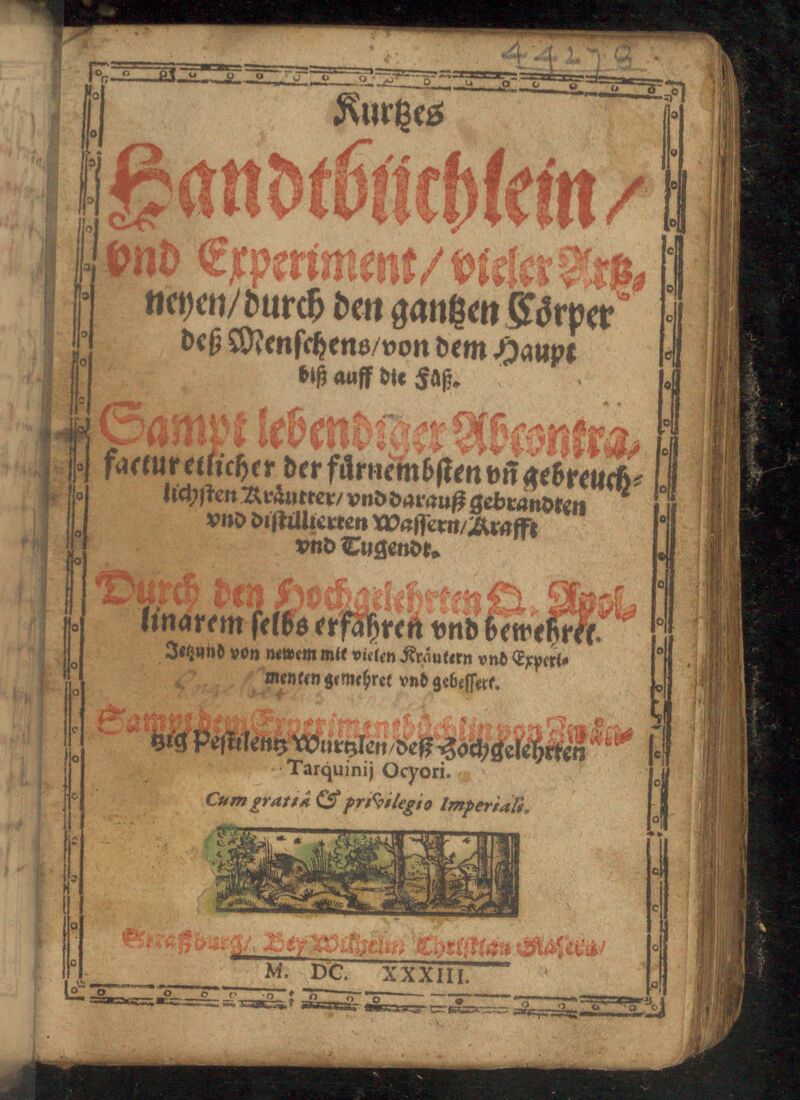 44278
Kurtzes
Handtbüchlein /
vnd Experiment / vieler Artz-
neyen / durch den gantzen Cörper
deß Menschens / von dem Haupt
biß auff die Füß.
Sampt lebendiger Abcontra-
factur etlicher der fürnembsten vñ gebreuch-
lichsten Kräutter / vnd darauß gebrandten
vnd distillierten Wassern / Krafft
vnd Tugendt.
Durch den Hochgelehrten Q. Apol-
linarem selbs erfahren vnd bewehret.
Jetzund von newem mit vielen Kräutern vnd Experi-
menten gemehret vnd gebessert.
Sampt dem Experimentbüchlin von Zwän-
tzig Pestilentz Wurtzlen / deß Hochgelehrten
Tarquinij Ocyori.
Cum gratiâ & privilegio Imperiali.
Straßburg / Bey Wilhelm Christian Glasern /
M. DC. XXXIII.